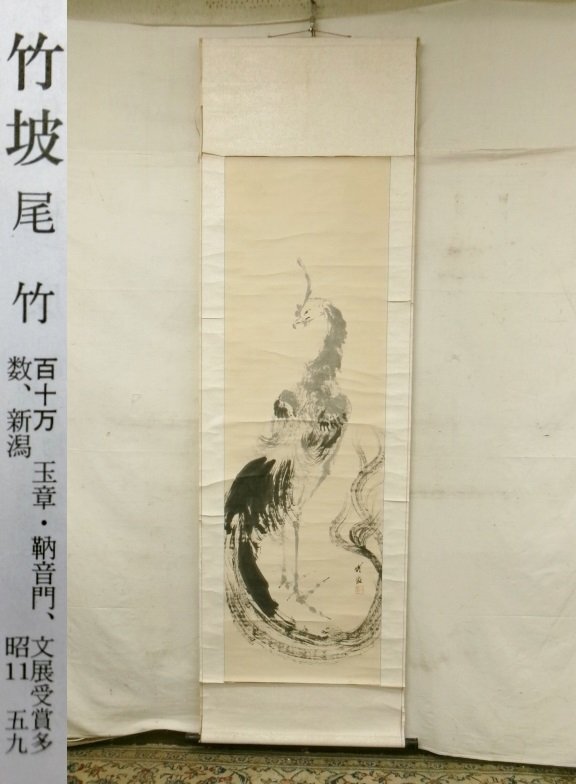 竹坡
尾竹
百十万 玉章・鞆音門、文展受賞多
数、新潟 昭11 五九
竹坡